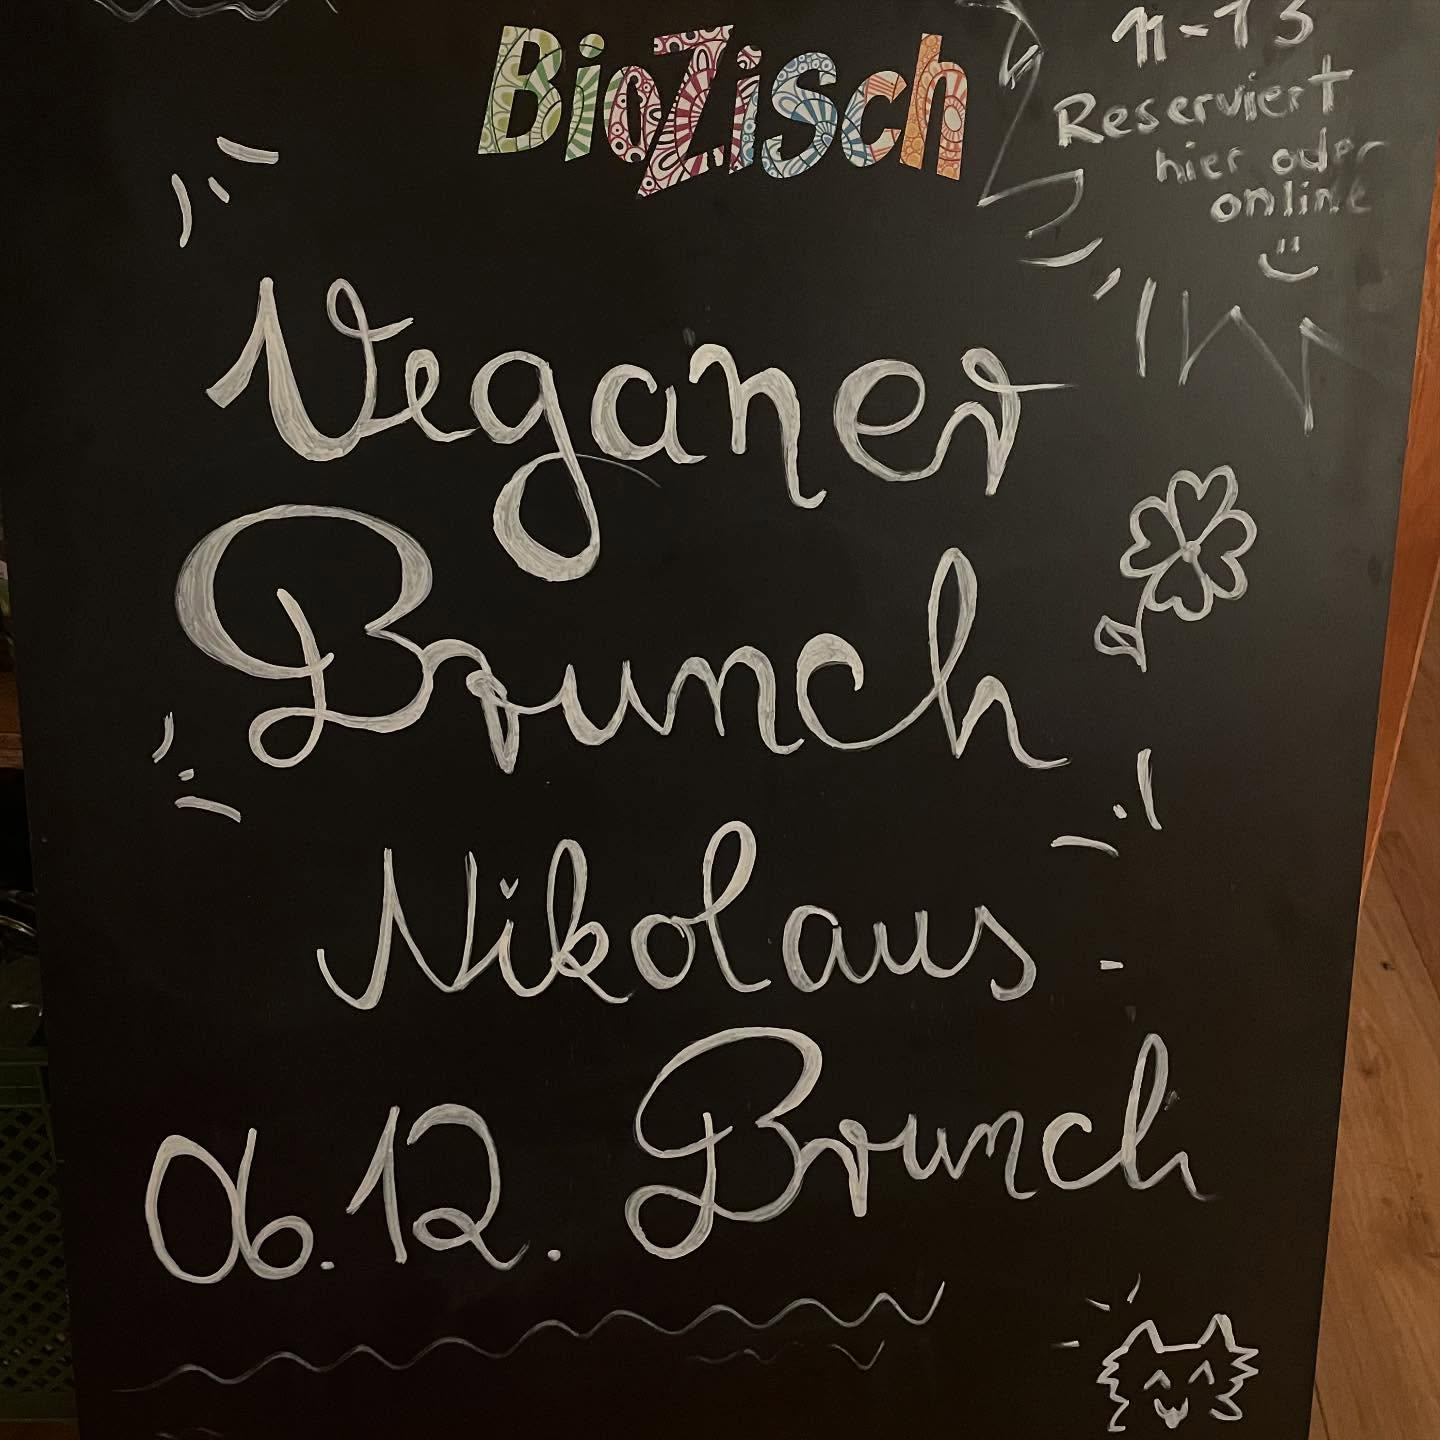 BioZisch
11-13
Reserviert
hier oder
online
Veganer
Brunch
Nikolaus-
06.12. Brunch